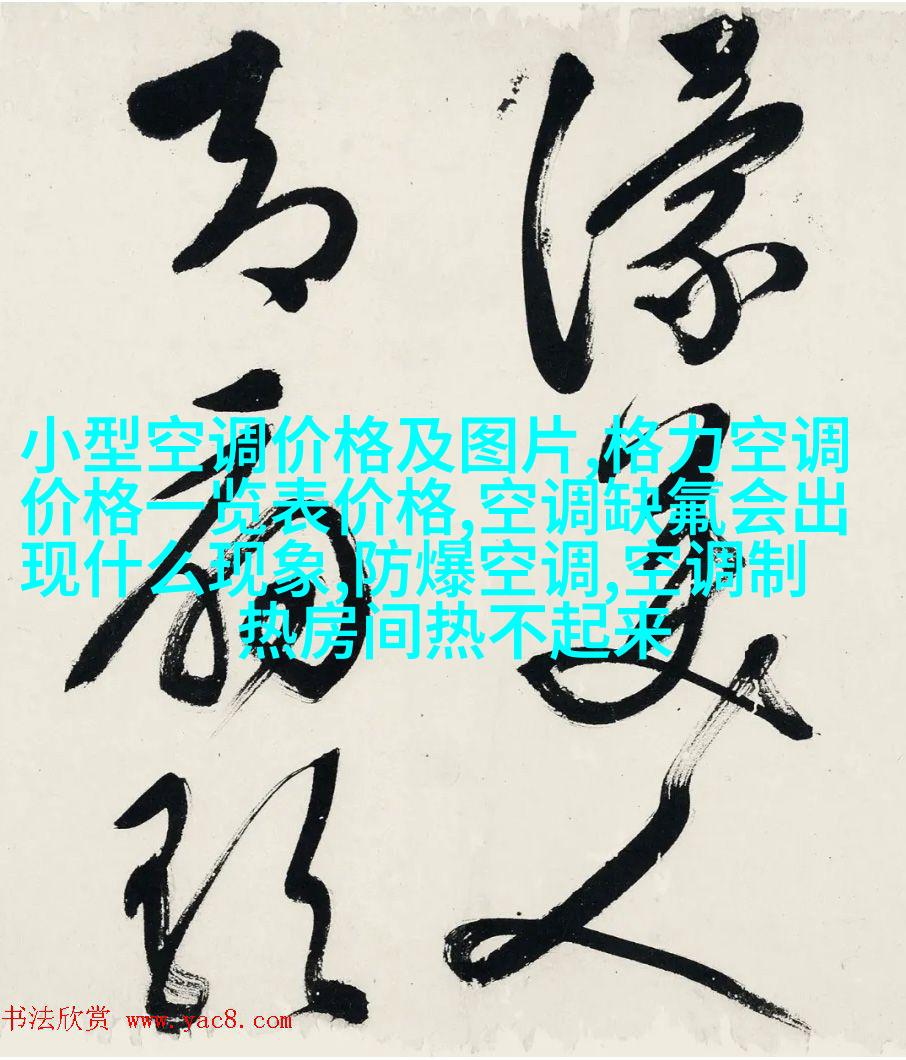 濠美人
小型空调价格及图片,格力空调
价格一览表价格,空调缺氟会出
现什么现象,防爆空调,空调制
热房间热不起来
书法欣赏 www.yac8.com